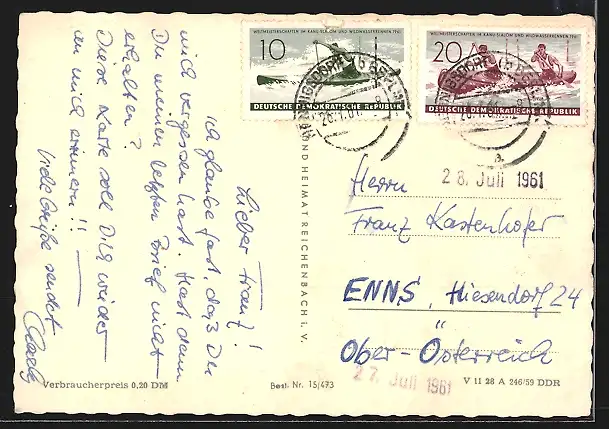 WELTMEISTERSCHAFTEN IM KANU-SLALOM UND WILDWASSERRENNEN 1961
10
DEUTSCHE DEMOKRATISCHE REPUBLIK
WELTMEISTERSCHAFTEN IM KANU-SLALOM UND WILDWASSERRENNEN 1961
20
DEUTSCHE DEMOKRATISCHE REPUBLIK
Lieber Franz!
Ich glaube fast, daß Du
mich vergessen hast. Hast denn
Du meinen letzten Brief nicht
erhalten?
Diese Karte soll Dich wieder
an mich erinnern!!
Viele Grüße sendet
UND HEIMAT REICHENBACH I. V.
28. Juli 1961
Herrn
Franz Kastenhofer
ENNS, Hiesendorf 24
Ober-Österreich
27. Juli 1961
Verbraucherpreis 0.20 DM
Best. Nr. 15/473
V 11 28 A 246/59 DDR